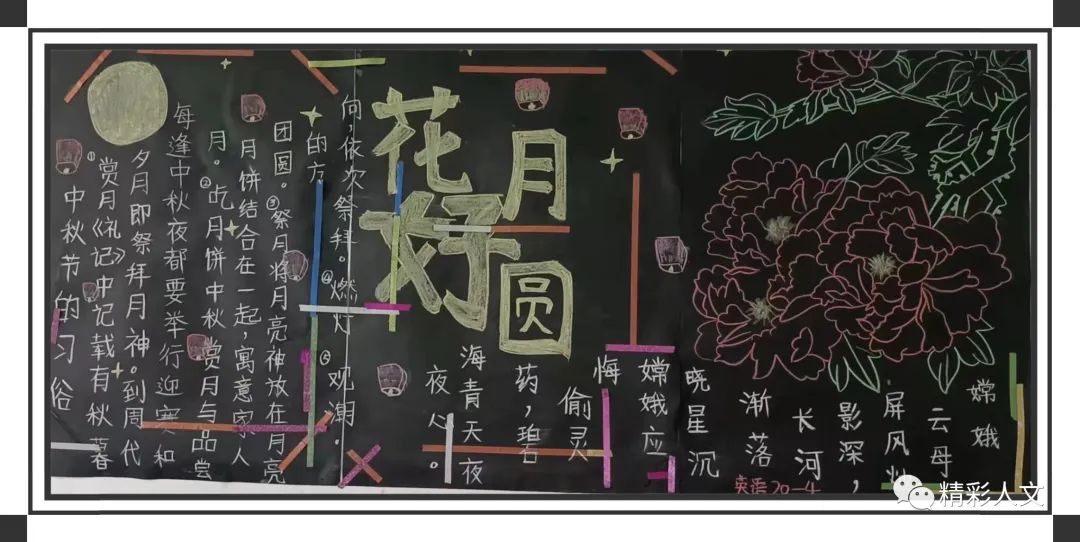 中秋节的习俗
①赏月《礼记》中记载有秋暮
夕月即祭拜月神。到周代
每逢中秋夜都要举行迎寒和
月。②吃月饼中秋赏月与品尝
月饼结合在一起,寓意家人
团圆。③祭月将月亮神放在月亮
的方
向,依次祭拜。④燃灯⑤观潮。
花好
月圆
嫦娥
云母
屏风
影深,
长河
渐落
晓星沉
嫦娥应
悔
偷灵
药,碧
海青天夜
夜心。
英语20-4
精彩人文